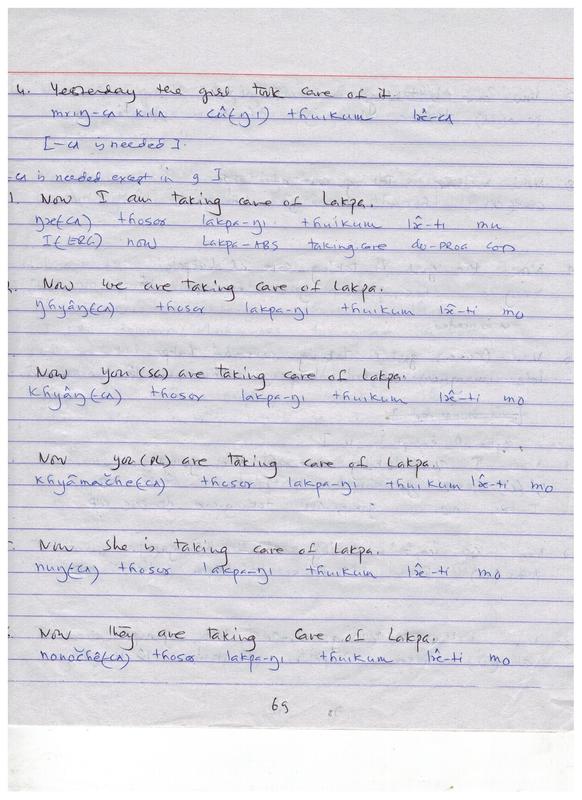 4. Yesterday the girl took care of it
mrɪŋ-cʌ kilʌ câ(ŋɪ) thuikum lx̂-cʌ
[-cʌ is needed].
-cʌ is needed except in 9]
1. Now I am taking care of Lakpa.
ŋx(cʌ) thosor lakpa-ŋɪ thuikum lx̂-ti mu
I(ERG) now Lakpa-ABS taking.care do-PROG COP
Now we are taking care of Lakpa.
ŋhyâŋ(-cʌ) thosor lakpa-ŋɪ thuikum lx̂-ti mo
Now you (SG) are taking care of Lakpa.
khyâŋ(-cʌ) thosor lakpa-ŋɪ thuikum lx̂-ti mo
Now you (PL) are taking care of Lakpa.
khyâmačhe(-cʌ) thosor lakpa-ŋɪ thuikum lx̂-ti mo
Now she is taking care of Lakpa.
nuŋ(-cʌ) thosor lakpa-ŋɪ thuikum lx̂-ti mo
Now they are taking care of Lakpa.
nonočhê(-cʌ) thosor lakpa-ŋɪ thuikum lx̂-ti mo
69